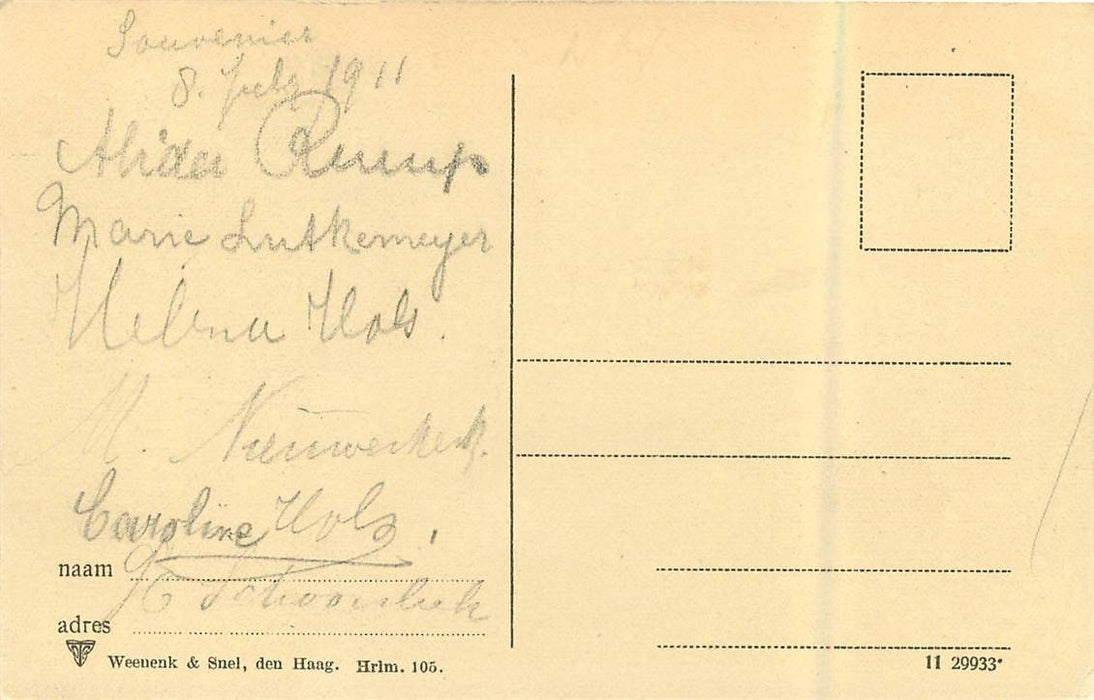 Souvenier
8. July 1911
Alida Rump
Marie Lutkemeyer
Helena Hols.
M. Nieuwerkerk.
Caroline Hols.
naam
H
adres
Weenenk & Snel, den Haag. Hrlm. 105.
11 29933*